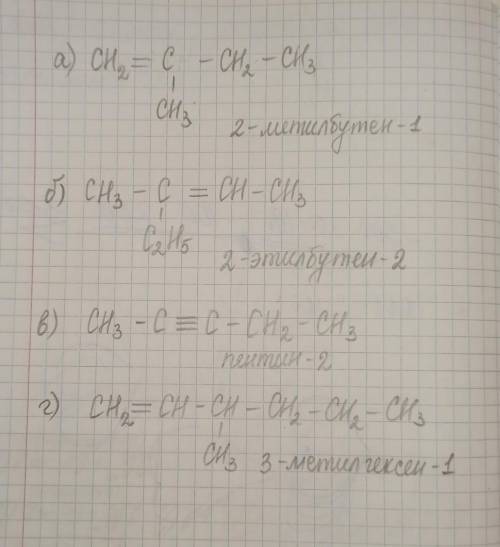 а) CH2 = C - CH2 - CH3
CH3
2-метилбутен-1
б) CH3 - C = CH - CH3
C2H5
2-этилбутен-2
в) CH3 - C ≡ C - CH2 - CH3
пентин-2
г) CH2 = CH - CH - CH2 - CH2 - CH3
CH3
3-метилгексен-1